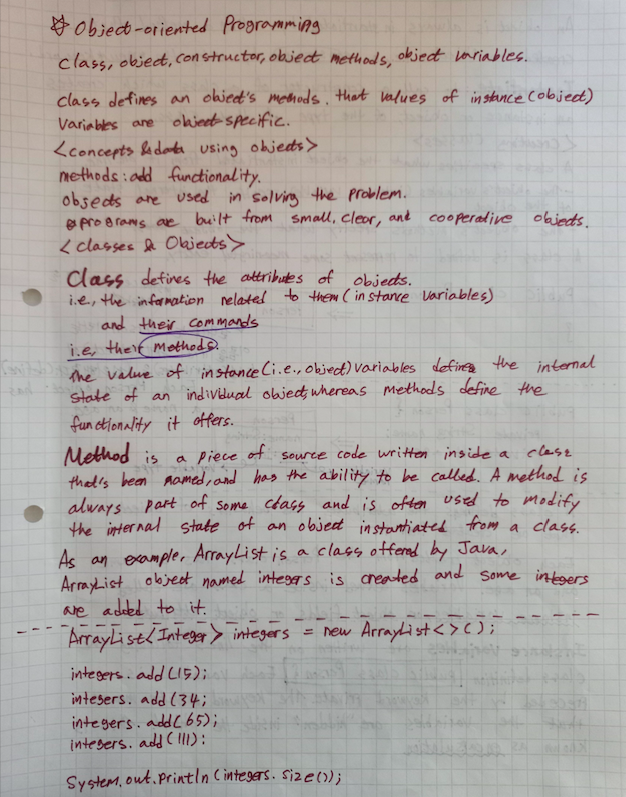 ☆ Object-oriented Programming
class, object, constructor, object methods, object variables.
class defines an object's methods. that values of instance (object)
Variables are object-specific.
<concepts & data using objects>
methods: add functionality.
objects are used in solving the problem.
programs are built from small, clear, and cooperative objects.
<classes & Objects>
Class defines the attributes of objects.
i.e., the information related to them (instance variables)
and their commands
i.e, their methods.
The value of instance (i.e., object) variables defines the internal
state of an individual object, whereas methods define the
functionality it offers.
Method is a piece of source code written inside a class
that's been named, and has the ability to be called. A method is
always part of some class and is often used to modify
the internal state of an object instantiated from a class.
As an example, ArrayList is a class offered by Java,
ArrayList object named integers is created and some integers
are added to it.
ArrayList<Integer> integers = new ArrayList<>();
integers.add(15);
integers.add(34;
integers.add(65);
integers.add(111);
System.out.println(integers.size());